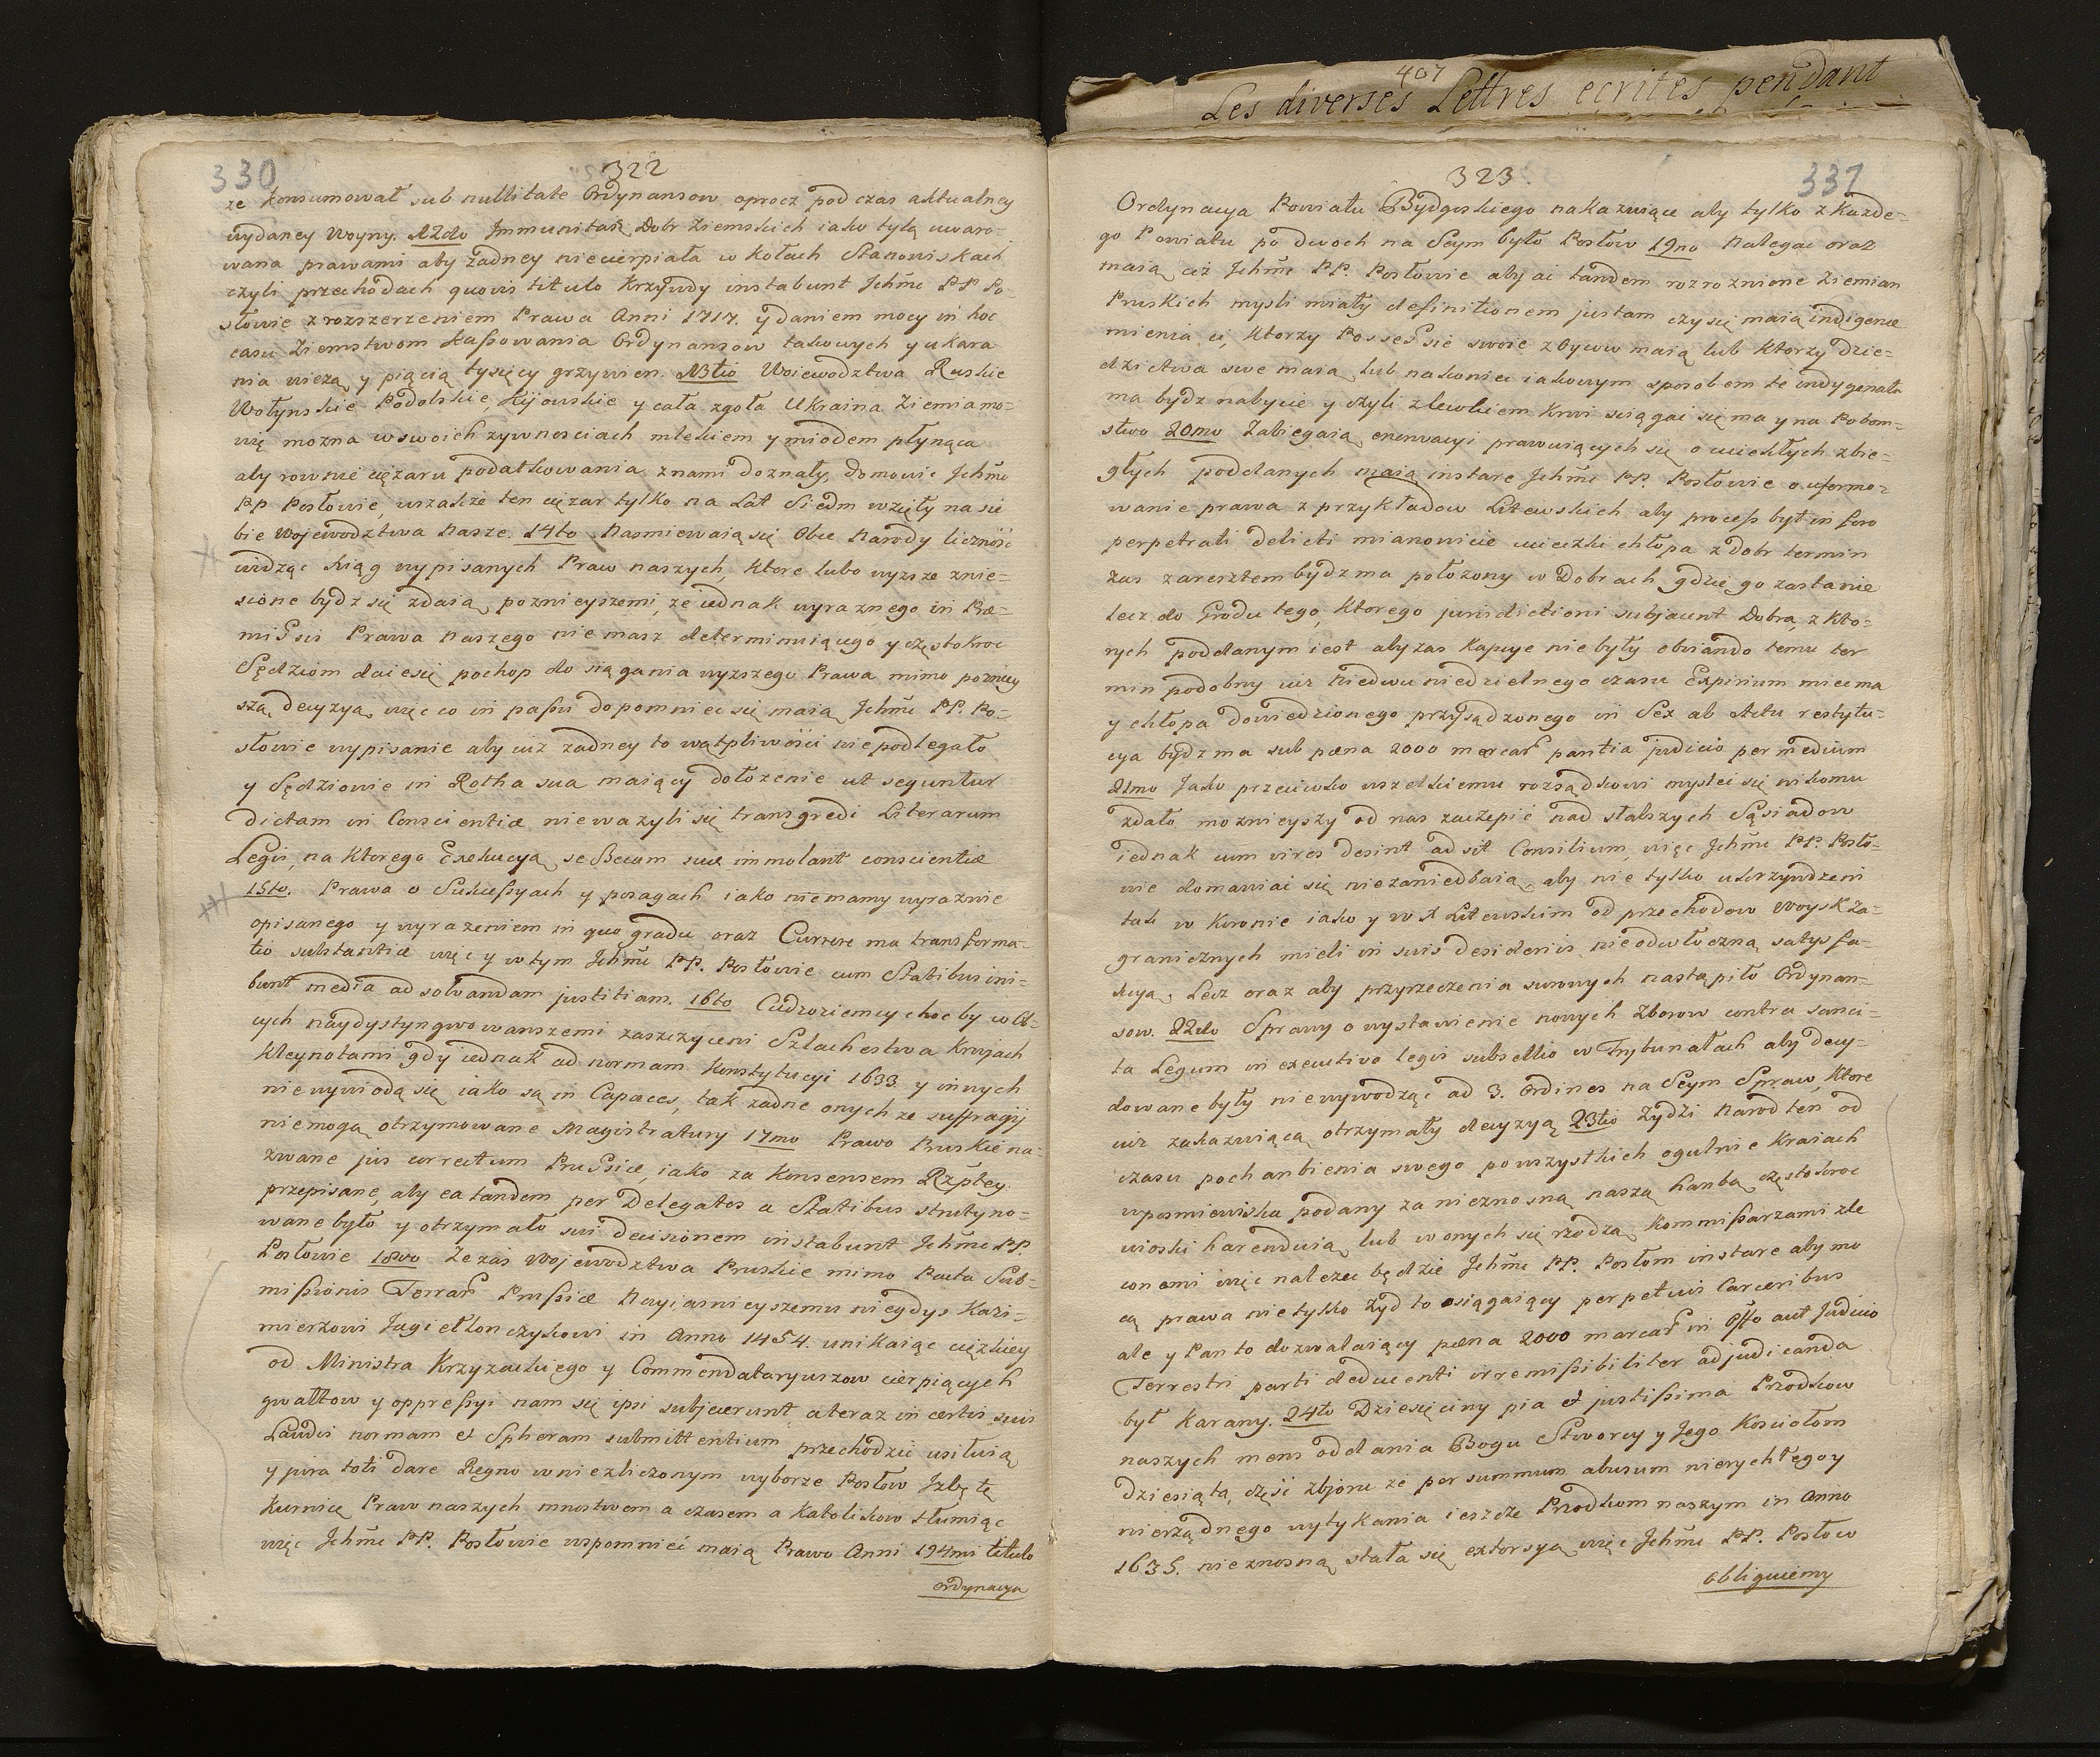 407
Les diverses Lettres ecrites pendant
330
322
ze konsumował sub nullitate Ordynansow oprocz pod czas aktualney
wydaney Woyny. 12do Immunitas Dobr Ziemskich iako tylą uwaro-
wana prawami aby żadney niecierpiała w kołach Stanowiskach
czyli przechodach quovis titulo krzywdy instabunt Jchmć PP Po-
słowie z rozszerzeniem Prawa Anni 1717. y daniem mocy in hoc
casu Ziemstwom kassowania Ordynansow takowych y ukara
nia wiezą y piącią tysięcy grzywien. 13tio Woiewodztwa Ruskie
Wołynskie Podolskie, Kijowskie y cała zgoła Ukraina Ziemia mo-
wię mozna w swoich zywnosciach mlekiem y miodem płynąca
aby rownie ciężaru podatkowania z nami doznały, domowić Jchmć
PP Posłowie, wszakże ten ciężar tylko na Lat Siedm wzięły na sie
bie Wojewodztwa Nasze. 14to Nasmiewaią się Obce Narody liczność
widząc xiąg wypisanych Praw naszych, ktore lubo wyzsze znie-
sione bydz się zdaią poznieyszemi, że iednak wyraznego in Præ-
missis Prawa Naszego nie masz determinuiącego y częstokroc
Sędziom daie się pochop do siągania wyzszego Prawa mimo pozniey
szą decyzyą więc co in passu dopomniec się maią Jchmć PP. Po-
słowie wypisanie aby iuż żadney to wątpliwości nie podlegało
y Sędziowie in Rotha sua maiący dołożenie ut sequntur
dictam in Conscientiæ nie ważyli się transgredi Literarum
Legis, na ktorego Exekucyą se Becum suæ immolant conscientiæ
15to. Prawa o Sukcessyach y posagach iako nie mamy wyraznie
opisanego y wyrażeniem in quo gradu oraz Currere ma transforma-
tio substantiæ więc y w tym Jchmć PP. Posłowie cum Statibus ini-
bunt media ad solvandam justitiam. 16to Cudzoziemcy choc by w Ob-
cych naydystyngwowanszemi zaszczyceni Szlachestwa krajach
kleynotami gdy iednak ad normam Konstytucyi 1633 y innych
nie wywiodą się iako są in Capaces, tak żadne onych ze suffragij
nie mogą otrzymowane Magistratury 17mo Prawo Pruskie na-
zwane jus correctum Prussiæ, iako za konsensem Rzptey
przepisane, aby ea tandem per Delegatos a Statibus strutyno-
wane było y otrzymało sui decisionem instabunt Jchmć PP.
Posłowie 18vo Ze zas Wojewodztwa Pruskie mimo Pacta Sub-
missionis Terrar Prussiæ Nayiasnieyszemu niegdys Kazi-
mierzowi Jagiellonczykowi in Anno 1454. unikaiąc ciężkiey
od Ministra Krzyzackiego y Commendataryuszow cierpiących
gwałtow y oppressyi nam się ipsi subjecerunt, a teraz in certis suis
Laudis normam et Spheram submittentium przechodzić usiłuią
y jura toti dare Regno w niezliczonym wyborze Posłow Izbę tę
kuznicę Praw naszych mnostwem a czasem a Katolikow tłumiąc
więc Jchmć PP. Posłowie wspomnieć maią Prawo Anni 194mi titulo
Ordynacya
323.
331
Ordynacya Powiatu Bydgoskiego nakazuiące aby tylko z kazde-
go Powiatu po dwoch na Seym było Posłow 19no Nalegac oraz
maią też Jchmć PP. Posłowie aby ai tandem rozroznione Ziemian
Pruskich mysli miały definitionem justam czy się maią indigenæ
mienia ci, ktorzy Possessie swoie zbywc maią lub ktorzy dzie-
dzictwa swe maią, lub nakoniec iakowym sposobem te indygenata
ma bydz nabycie y czyli zlewkiem krwi sciągać się ma y na Potom-
stwo 20mo Zabiegaią enerwacyi prawuiących się o uciekłych zbie-
głych poddanych maią instare Jchmć PP. Posłowie o uformo-
wanie prawa z przykładow Litewskich aby process był in foro
perpetrati delicti mianowicie ucieczki chłopa z dobr termin
zas z aresztem bydz ma położony w Dobrach, gdzie go zastanie
lecz do Grodu tego, ktorego jurisdictioni subjacunt Dobra, z kto-
rych poddanym iest aby zas kapcye nie były obviando temu ter
min podobny iuż Niedwuniedzielnego czasu Expirium miec ma
y chłopa dowiedzionego przysądzonego in Sex ab Actu restytu-
cya bydz ma sub pæna 2000 marcar pantia judicio per medium
21mo Jako przeciwko wszelkiemu rozsądkowi myslec się nikomu
zdało moznieyszy od nas zaczepić nad słabszych Sąsiadow
iednak cum vires desint adsit Consilium, więc Jchmć PP. Posło-
wie domawiać się niezaniedbaią, aby nie tylko ukrzywdzeni
tak w Koronie iako y w X Litewskim od przechodow Woysk Za-
granicznych mieli in suis desideriis nieodwłoczną satysfa-
kcyą, Lecz oraz aby przyrzeczenia surowych nastąpiło Ordynan-
sow. 22do Sprawy o wystawienie nowych Zborow contra sanci-
ta Legum in executivo legis subsellio w Trybunałach aby decy-
dowane były nie wywodząc ad 3. Ordines na Seym Spraw, ktore
iuż zakazuiącą otrzymały decyzyą 23tio Zydzi Narod ten od
czasu pochanbienia swego po wszystkich ogulnie Kraiach
uposmiewiska podany za nieznosną naszą hanbą częstokroc
wioski harenduią lub w onych się rządzą kommissarzami zle
conemi więc nalezec będzie Jchmć PP. Posłom instare aby mo
cą prawa nie tylko Zyd to osiągaiący perpetuis Carceribus
ale y Pan to dozwalaiący pæna 2000 marcar in Offo aut Judicio
Terrestri parti deducenti irremissibiliter adjudicanda
był karany. 24to Dziesięciny pia et justissima Przodkow
naszych mens oddania Bogu Stworcy y Jego Kosciołom
Dziesiąta, częśc zbjoru że per summum abusum nierychłego y
nierządnego wytykania ieszcze Przodkom naszym in Anno
1635. nieznosną stała się extorsyą więc Jchmć PP. Posłow
obliguiemy